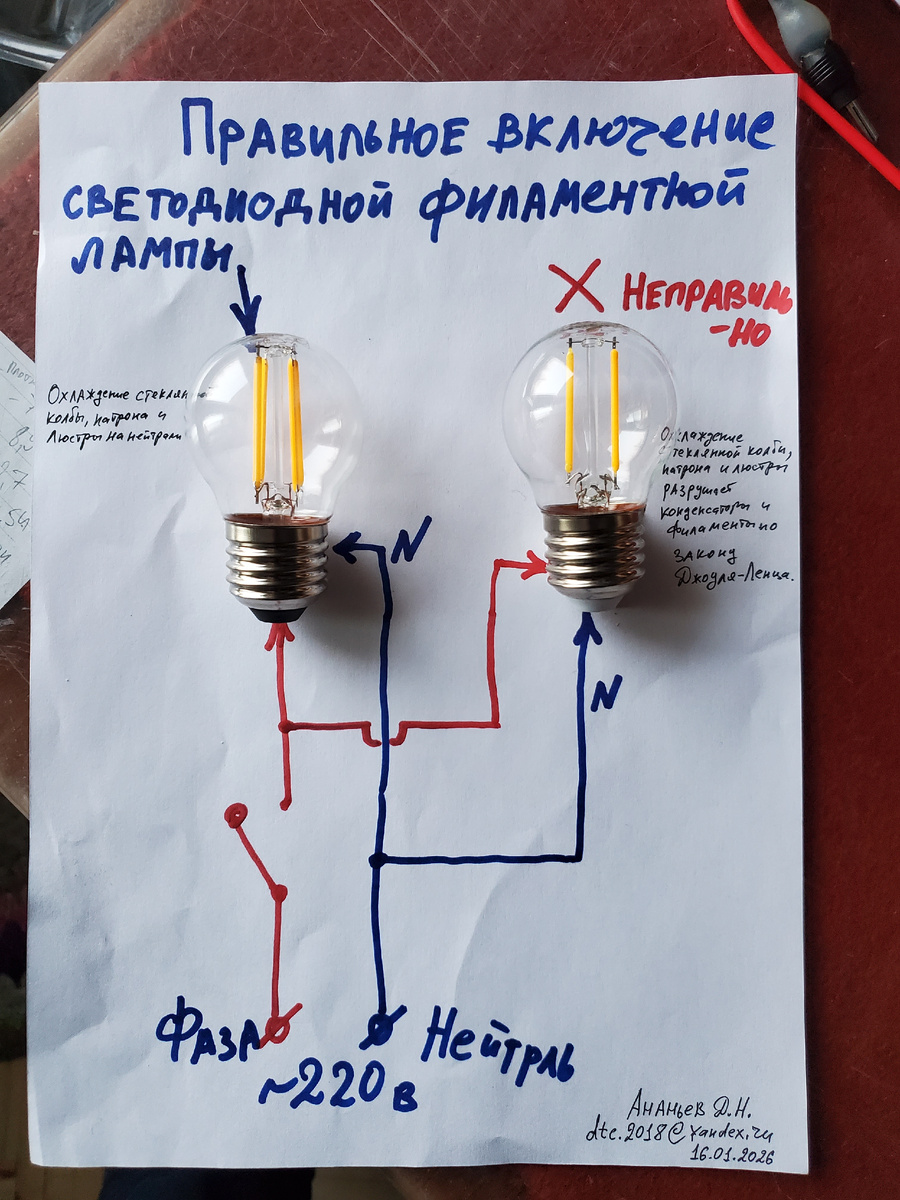 Правильное включение
светодиодной филаментной
лампы
Неправиль
-но
Охлаждение стеклян
колбы, патрона и
Люстры на нейтрали
Охлаждение
стеклянной колбы,
патрона и люстры
разрушает
конденсаторы и
филаменты по
закону
Джоуля-Ленца.
N
N
Фаза
Нейтрль
~220в
Ананьев Д.Н.
dtc.2018@yandex.ru
16.01.2026